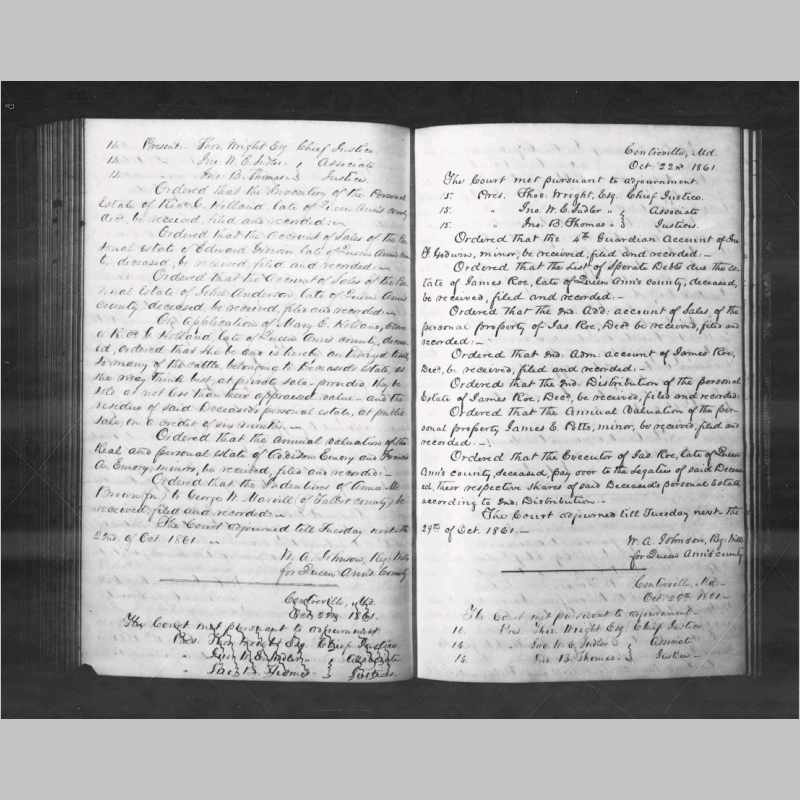 14. Present. Thos. Wright Esq Chief Justice
14. " Jno. W. E. Sudler } Associate
14. " Jno. B. Thomas } Justices
Ordered that the of the Personal
Estate of Holland, late of Queen Ann's county
dec'd, be received, filed and recorded.
Ordered that the account of Sales of the Per-
sonal estate of Edward late of Queen Ann's
deceased, be received, filed and recorded.
Ordered that the Account of Sales of the Per-
sonal Estate of John Anderson, late of Queen Ann's
County deceased, be received, filed and recorded.
On application of Mary E. Holland,
Holland, late of Queen Ann's county, deceas-
ed, ordered that she be and is hereby authorized to sell
so many of the cattle belonging to Deceased's Estate, as
she may think best, at private sale provided they be
sold at not less than their appraised value and the
residue of said Deceased's personal estate, at public
sale, on a credit of six months.
Ordered that the annual valuation of the
Real and personal estate of Addison Emory and Frances
A. Emory, minor, be received, filed and recorded.
Ordered that the Indentures of Anna M.
Brown to George W. of Talbot county, be
received, filed and recorded.
The Court adjourned till Tuesday next the
22nd of Oct. 1861.
W. A. Johnson, Reg. Wills
for Queen Ann's County
Centreville, Md.
Oct. 1861.
The Court met pursuant to adjournment
Pres. Thos Wright Esq. Chief Justice
" Jno. W. E. Sudler } Associate
" Jno. B. Thomas } Justices
Centreville, Md.
Oct. 22nd 1861.
The Court met pursuant to adjournment.
15. Pres. Thos. Wright, Esq. Chief Justice
15. " Jno. W. E. Sudler " } Associate
15. " Jno. B. Thomas " } Justices.
Ordered that the 4th Guardian Account of Jno
F. Godwin, minor, be received, filed and recorded.
Ordered that the List of Sperate Debts due the es-
tate of James Roe, late of Queen Ann's county, deceased,
be received, filed and recorded.
Ordered that the 2nd. Add: account of Sales of the
personal property of Jas. Roe, Dec'd be received, filed and
recorded.
Ordered that 2nd. Adm. account of James Roe,
Dec'd, be received, filed and recorded.
Ordered that the 2nd. Distribution of the personal
Estate of James Roe, Dec'd, be received, filed and recorded.
Ordered that the Annual Valuation of the per-
sonal property James E. Potts, minor, be received, filed and
recorded.
Ordered that the Executor of Jas. Roe, late of Queen
Ann's county, deceased, pay over to the Legatees of said Deceas-
ed, their respective shares of said Deceased's personal Estate
according to 2nd. Distribution.
The Court adjourned till Tuesday next the
29th of Oct. 1861.
W. A. Johnson, Reg: Wills
for Queen Ann's county
Centreville, Md.
Oct. 29th 1861.
The Court met pursuant to adjournment
16. Pres Thos. Wright Esq Chief Justice
16. " Jno. W. E. Sudler } Associate
16. " Jno. B. Thomas } Justices